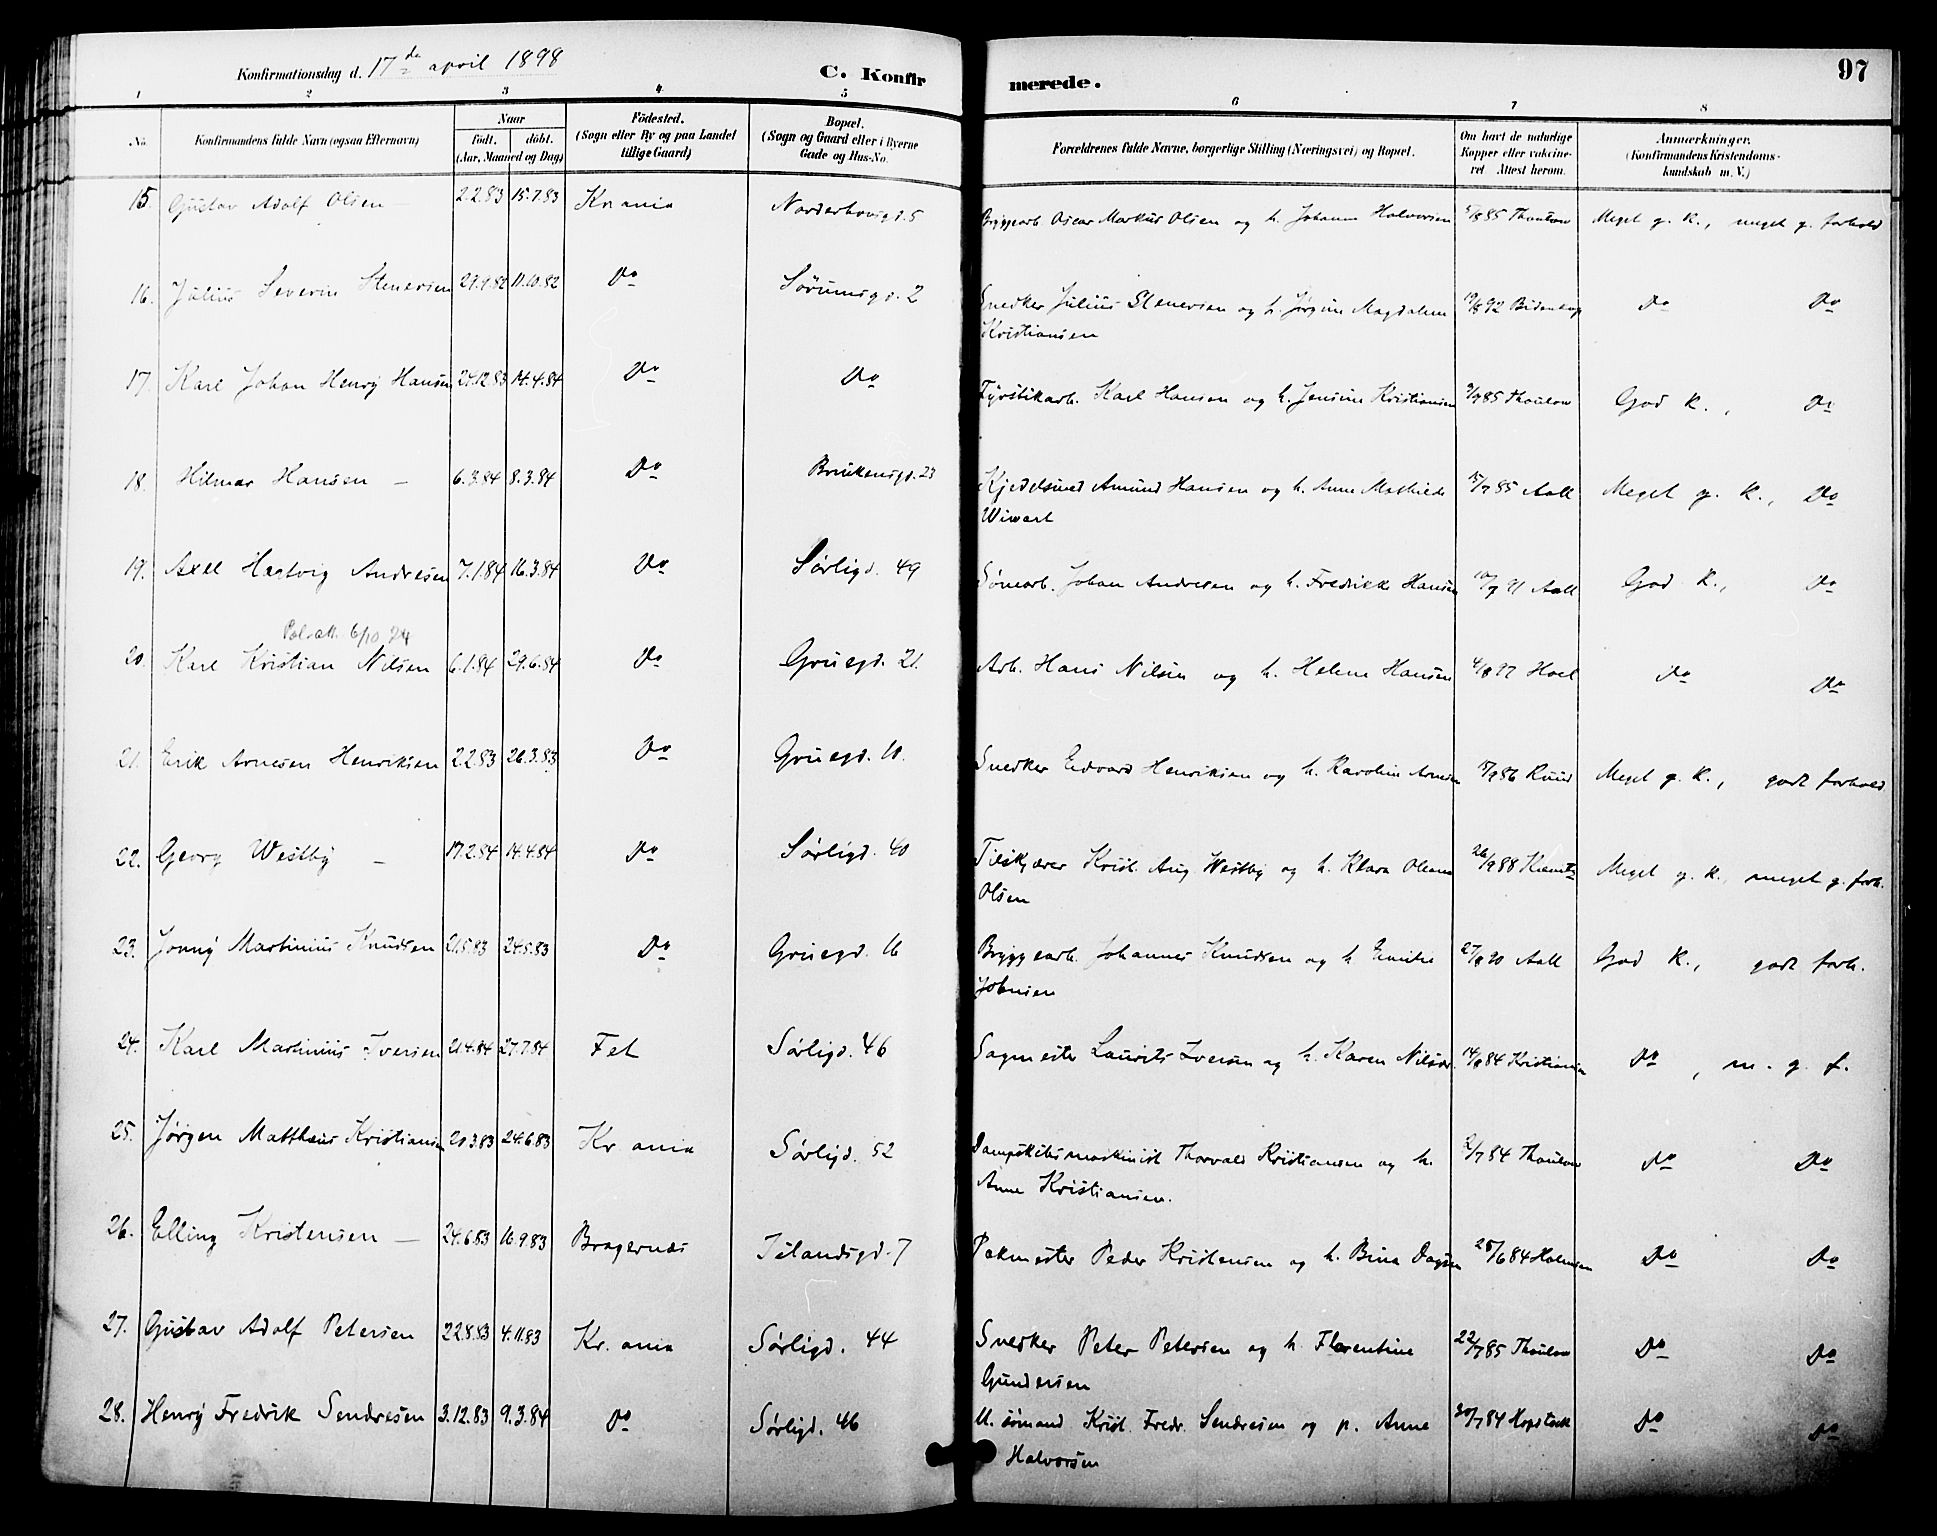 Konfirmationsdag d. 17de april 1898 C. Konfir merede. 97
1 2 3 4 5 6 7 8
No. Konfirmandens fulde Navn (ogsaa Efternavn) Naar födt. döbt. (Aar, Maaned og Dag) Födested. (Sogn eller By og paa Landet tillige Gaard) Bopæl. (Sogn og Gaard eller i Byerne Gade og Hus-No. Forældrenes fulde Navne, borgerlige Stilling (Næringsvei) og Bopæl. Om havt de naturlige Kopper eller vakcineret Attest herom. Anmærkninger. (Konfirmandens Kristendomskundskab m. V.)
15 Gustav Adolf Olsen — 2.2.83 15.7.83 Kr ania Norderhovsgd. 5 Bryggearb. Oscar Markus Olsen og h. Johanne Halvorsen 85 Thaulow Meget g. K., meget g. forhold
16. Julius Severin Stenersen 29.9.82 11.10.82 Do Sørumsgd. 2 Snedker Julius Stenersen og h. Jørgine Magdalene 92 Do Do
Kristiansen
17. Karl Johan Henry Hansen 27.12.83 14.4.84 Do Do Fyrstikarb. Karl Hansen og h. Jensine Kristiansen 85 Thaulow God K., Do
18. Hilmar Hansen — 6.3.84 8.3.84 Do gd. 23 Kjedelsmed Amund Hansen og h. Anne Mathilde 15/7 85 Aall Meget g. K., Do
Wiwart
19. Axel Hartvig Andresen 7.1.84 16.3.84 Do Sørligd. 49 Sømarb. Johan Andresen og h. Fredrikke Hansen 10/7 91 Aall God K., Do
6/10 74
20. Karl Kristian Nilsen 6.1.84 29.6.84 Do Gruegd. 21. Arb. Hans Nilsen og h. Helene Hansen 4/8 97 Hoel Do Do
21. Erik Arnesen Henriksen 2.2.83 26.3.83 Do Gruegd. 10. Snedker Edvard Henriksen og h. Karoline Arnesen 86 Ruud Meget g. K., godt forhold
22. Georg Westby — 17.2.84 14.4.84 Do Sørligd. 40 Tilskjærer Krist. Aug. Westby og h. Klara Oleane 26/9 88 Meget g. K., meget g. forh.
Olsen
23. Jonny Martinius Knudsen 21.5.83 24.5.83 Do Gruegd. 16 Bryggearb. Johannes Knudsen og h. Emilie 27/8 90 Aall God K., godt forh.
Johnsen
24. Karl Martinius Iversen 21.4.84 27.7.84 Fet Sørligd. 46 Sagmester Laurits Iversen og h. Karen Nilsdr. 14/8 84 Kristiania Do, m. g. f.
25. Jørgen Matthæus Kristiansen 20.3.83 24.6.83 Kr. ania Sørligd. 52 Dampskibsmaskinist Thorvald Kristiansen og h. 2/7 84 Thaulow Do Do
Anne Kristiansen.
26. Elling Kristensen — 24.6.83 16.9.83 Bragernæs Jslandsgd. 7 Pakmester Peder Kristensen og h. Bina Dagsen 25/6 84 Holmsen Do Do
27. Gustav Adolf Petersen 22.8.83 4.11.83 Kr. ania Sørligd. 44 Snedker Peter Petersen og h. Florentine 22/7 85 Thaulow Do Do
Gundersen
28. Henry Fredrik Sendresen 3.12.83 9.3.84 Do Sørligd. 46 U. sømand Krist. Fredr. Sendresen og p. Anne 30/7 84 Hopstock Do Do
Halvorsen